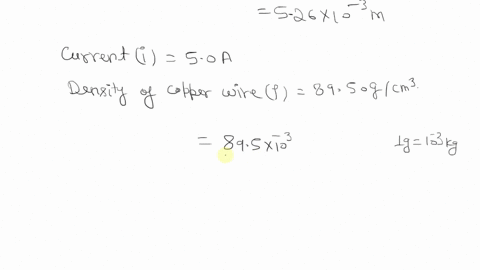 = 5.26 × 10⁻³ m
Current (i) = 5.0 A
Density of copper wire (ρ) = 89.50 g/cm³.
= 89.5 × 10⁻³
1g = 10⁻³ kg